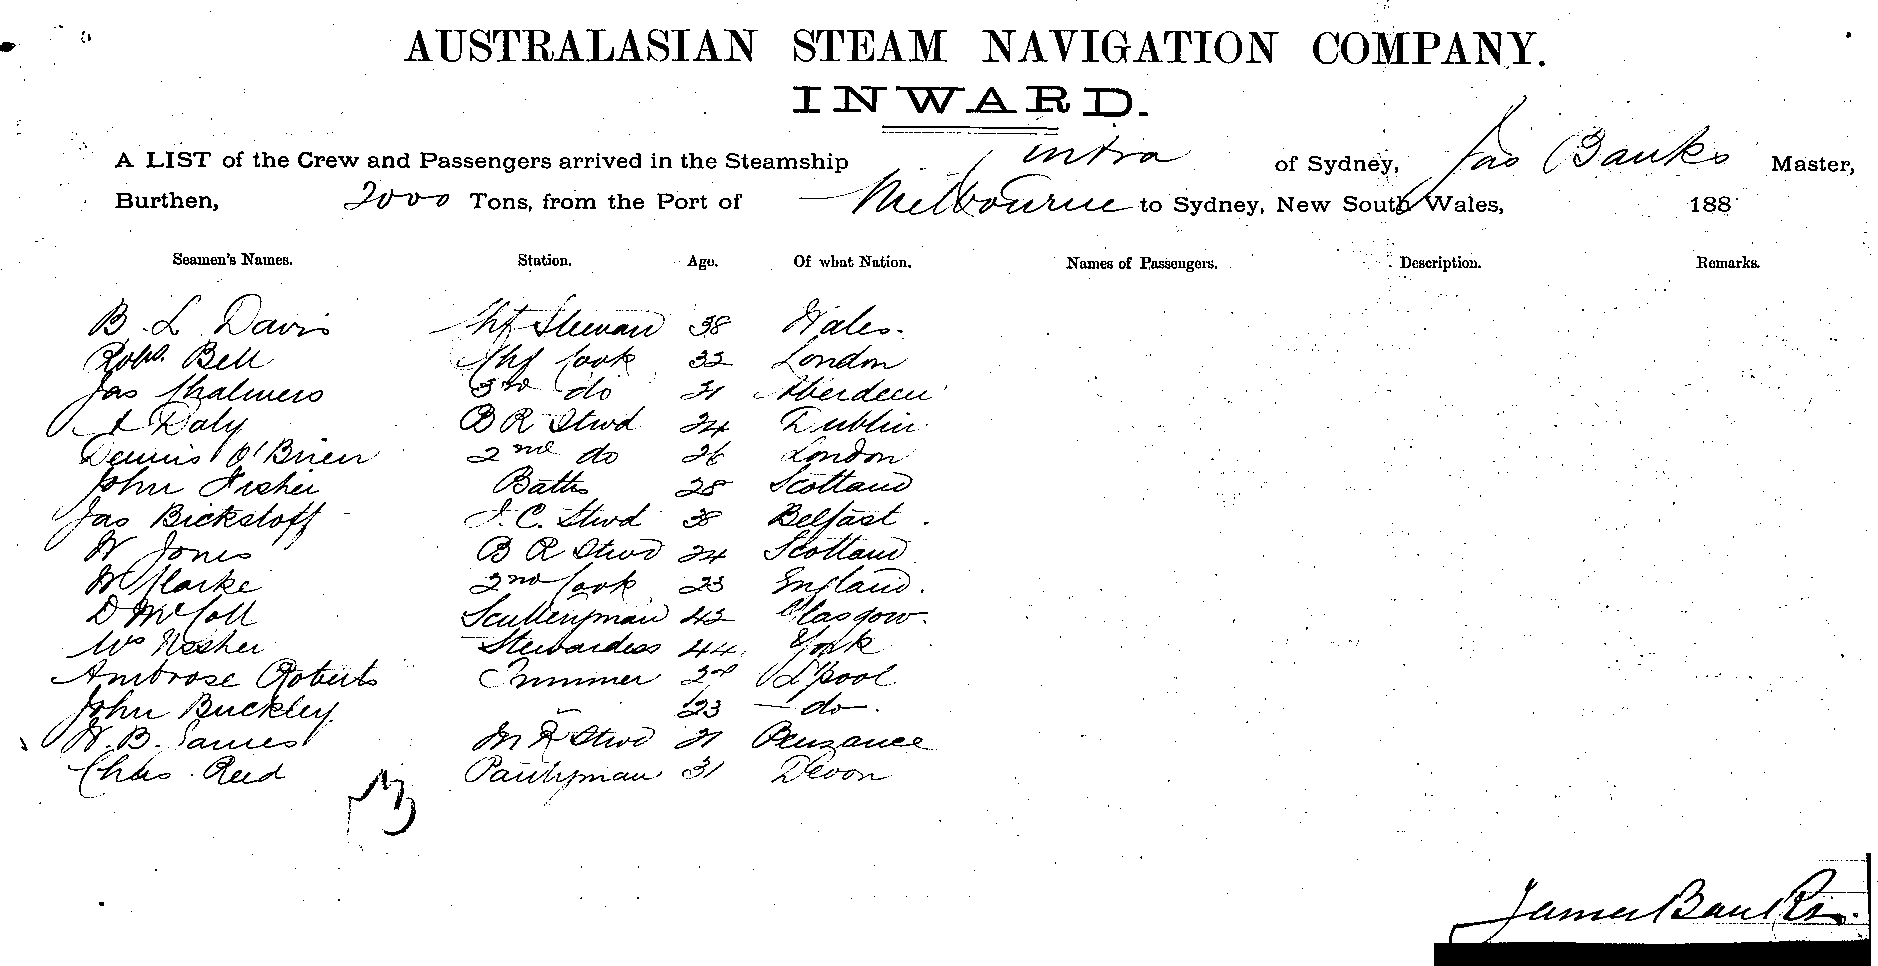 AUSTRALASIAN STEAM NAVIGATION COMPANY.
INWARD.
A LIST of the Crew and Passengers arrived in the Steamship Cintra of Sydney, Jas Banks Master,
Burthen, 2000 Tons, from the Port of Melbourne to Sydney, New South Wales, 188
Seamen's Names. Station. Age. Of what Nation. Names of Passengers. Description. Remarks.
B. L Davis Chf Steward 38 Wales.
Robt. Bell Chf Cook 32 London
Jas Chalmers 3rd do 21 Aberdeen
Daly B R Stwd 24 Dublin
Dennis O'Brien 2nd do 26 London
John Fisher Baths 28 Scotland
Jas Bickstoff J. C. Stwd 38 Belfast.
W Jones B R Stwd 24 Scotland
W Clarke 2nd Cook 23 England.
D McColl Sculleryman 42 Glasgow.
Mrs Stewardess 44 York
Ambrose Roberts Trimmer L'pool
John Buckley 23 - do -.
W. B. James M R Stwd 21 Penzance
Chas. Reed Pantryman 31 Devon
James Banks.